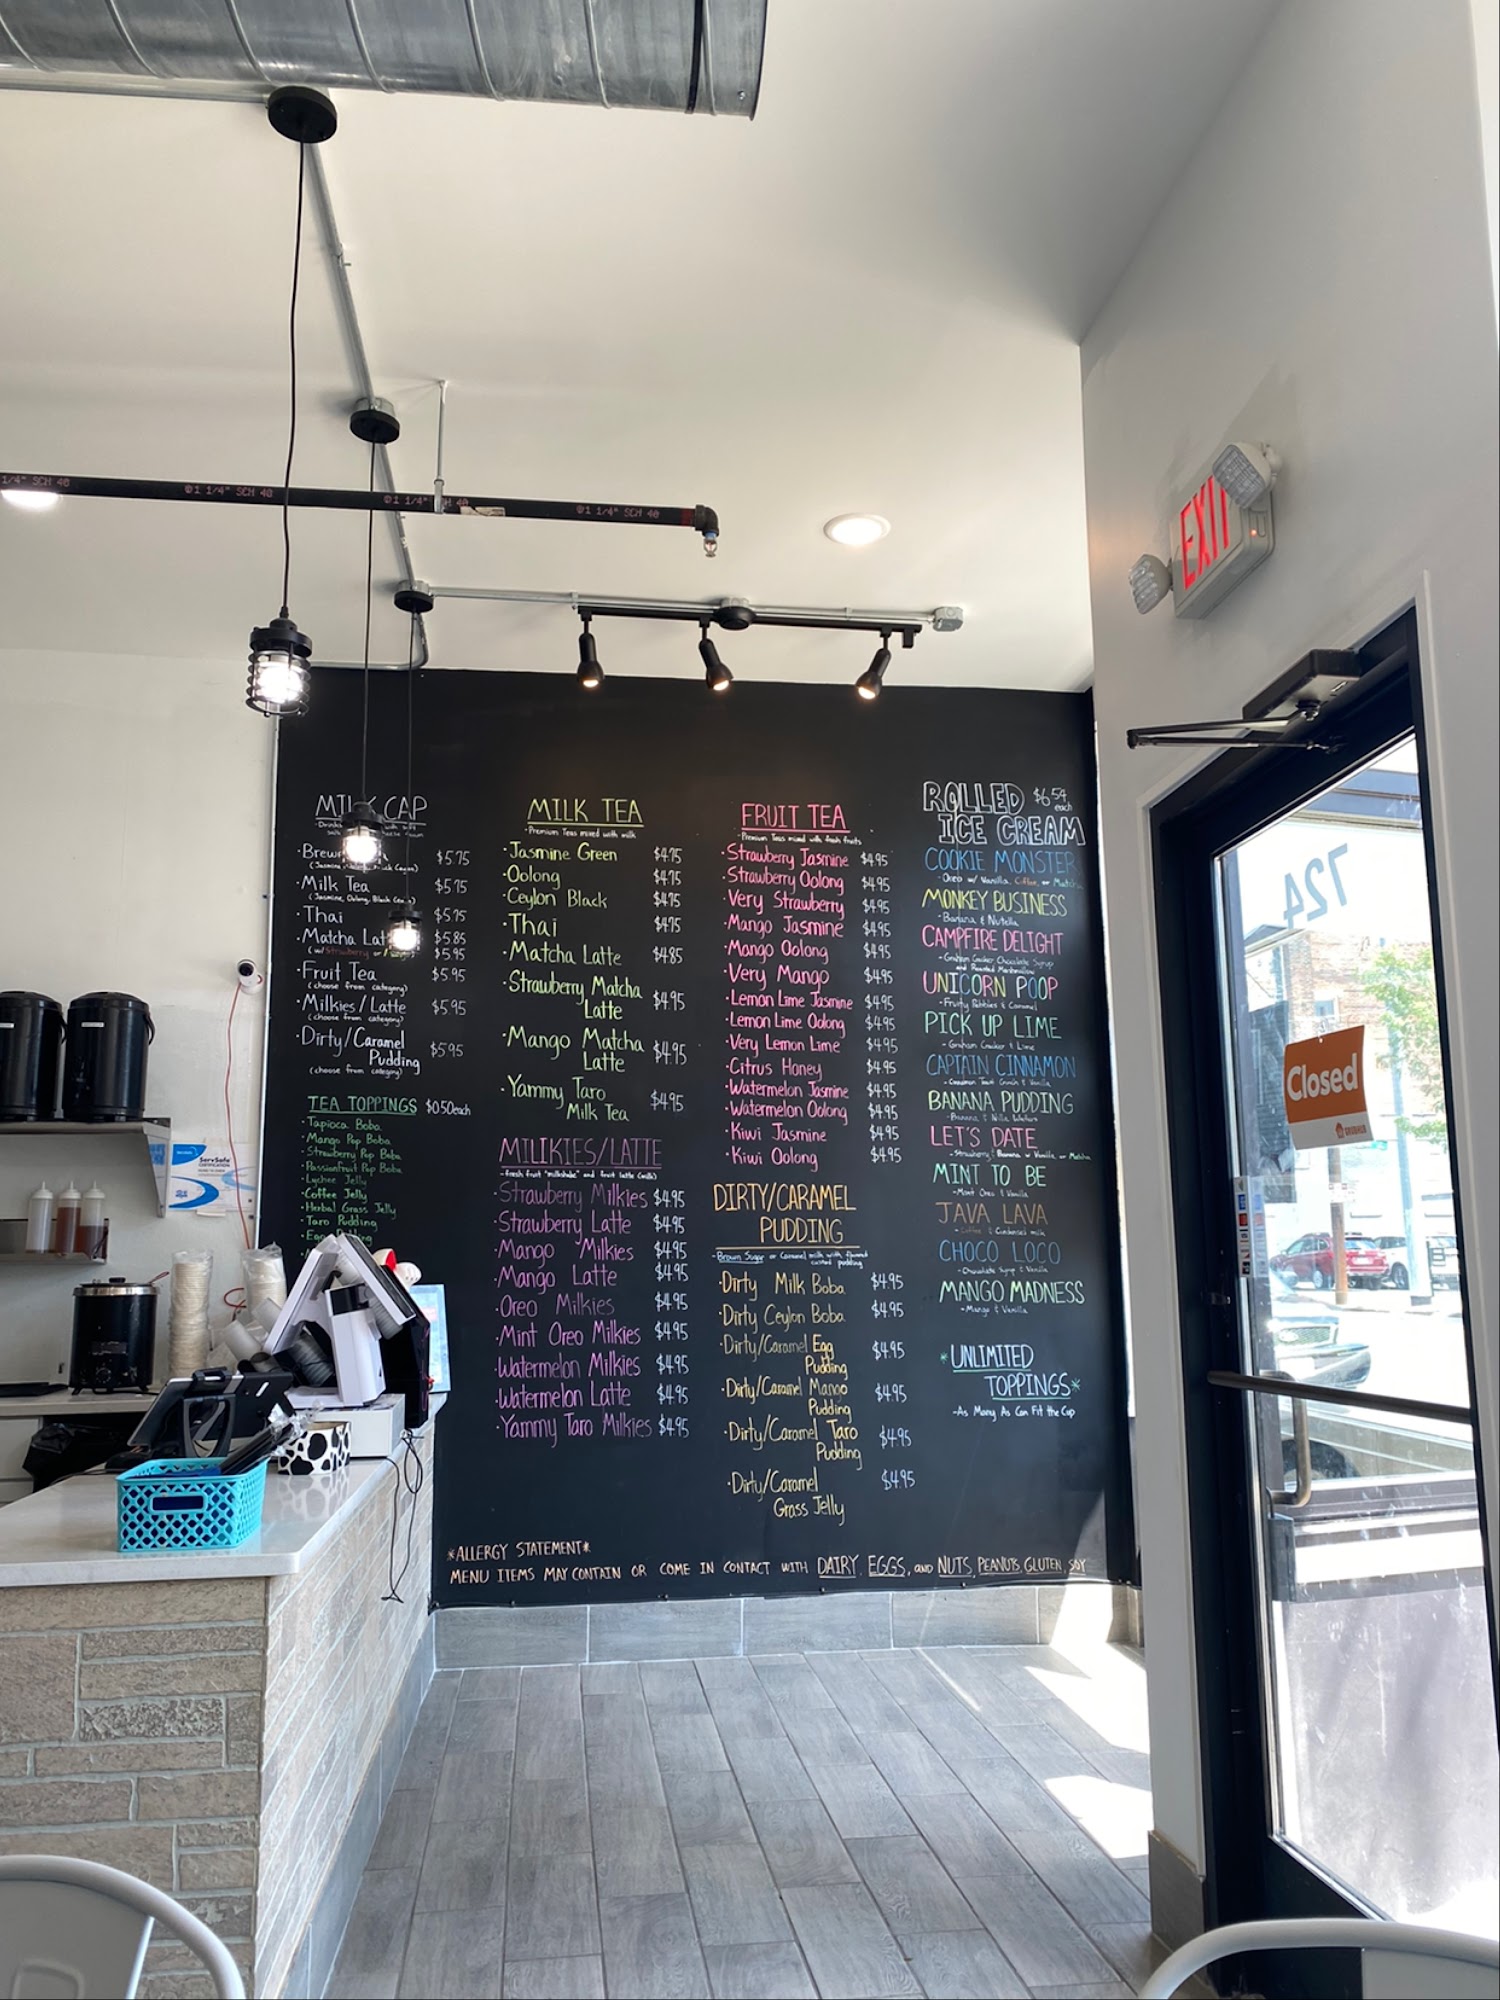 1/4" SCH 40
1 1/4" SCH 40
1 1/4"
40
1 1/4" SCH 40
EXIT
724
Closed
GRUBHUB
ServSafe
CERTIFICATION
MILK CAP
Milk Tea $5.75
(Jasmine, Oolong, Black Ceylon)
Thai $5.75
Matcha $5.85
(w/ Strawberry or $5.95
Fruit Tea $5.95
(choose from category)
Milkies/Latte $5.95
(choose from category)
Dirty/Caramel
Pudding $5.95
(choose from category)
TEA TOPPINGS $0.50 each
Tapioca Boba
Mango Pop Boba
Strawberry Pop Boba
PassionFruit Pop Boba
Lychee Jelly
Coffee Jelly
Herbal Grass Jelly
Taro Pudding
Egg Pudding
MILK TEA
-Premium Teas mixed with milk
·Jasmine Green $4.75
·Oolong $4.75
·Ceylon Black $4.75
·Thai $4.75
·Matcha Latte $4.85
·Strawberry Matcha
Latte $4.95
·Mango Matcha
Latte $4.95
·Yammy Taro
Milk Tea $4.95
MILKIES/LATTE
-fresh fruit "milkshake" and fruit latte (milk)
·Strawberry Milkies $4.95
·Strawberry Latte $4.95
·Mango Milkies $4.95
·Mango Latte $4.95
·Oreo Milkies $4.95
·Mint Oreo Milkies $4.95
·Watermelon Milkies $4.95
·Watermelon Latte $4.95
·Yammy Taro Milkies $4.95
FRUIT TEA
-Premium Teas mixed with fresh fruits
·Strawberry Jasmine $4.95
·Strawberry Oolong $4.95
·Very Strawberry $4.95
·Mango Jasmine $4.95
·Mango Oolong $4.95
·Very Mango $4.95
·Lemon Lime Jasmine $4.95
·Lemon Lime Oolong $4.95
·Very Lemon Lime $4.95
·Citrus Honey $4.95
·Watermelon Jasmine $4.95
·Watermelon Oolong $4.95
·Kiwi Jasmine $4.95
·Kiwi Oolong $4.95
DIRTY/CARAMEL
PUDDING
-Brown Sugar or Caramel milk with flavored
custard pudding
·Dirty Milk Boba $4.95
·Dirty Ceylon Boba $4.95
·Dirty/Caramel Egg
Pudding $4.95
·Dirty/Caramel Mango
Pudding $4.95
·Dirty/Caramel Taro
Pudding $4.95
·Dirty/Caramel
Grass Jelly $4.95
ROLLED $6.54
each
ICE CREAM
COOKIE MONSTER
-Oreo w/ Vanilla, Coffee, or Matcha
MONKEY BUSINESS
-Banana & Nutella
CAMPFIRE DELIGHT
-Graham Cracker Chocolate Syrup
and Roasted Marshmallow
UNICORN POOP
-Fruity Pebbles & Caramel
PICK UP LIME
-Graham Cracker & Lime
CAPTAIN CINNAMON
-Cinnamon Toast Crunch & Vanilla
BANANA PUDDING
-Banana & Nilla Wafers
LET'S DATE
-Strawberry & Banana w/ Vanilla or Matcha
MINT TO BE
-Mint Oreo & Vanilla
JAVA LAVA
-Coffee & Condensed milk
CHOCO LOCO
-Chocolate Syrup & Vanilla
MANGO MADNESS
-Mango & Vanilla
*UNLIMITED
TOPPINGS*
-As Many As Can Fit the Cup
*ALLERGY STATEMENT*
MENU ITEMS MAY CONTAIN OR COME IN CONTACT WITH DAIRY, EGGS, AND NUTS, PEANUTS, GLUTEN, SOY